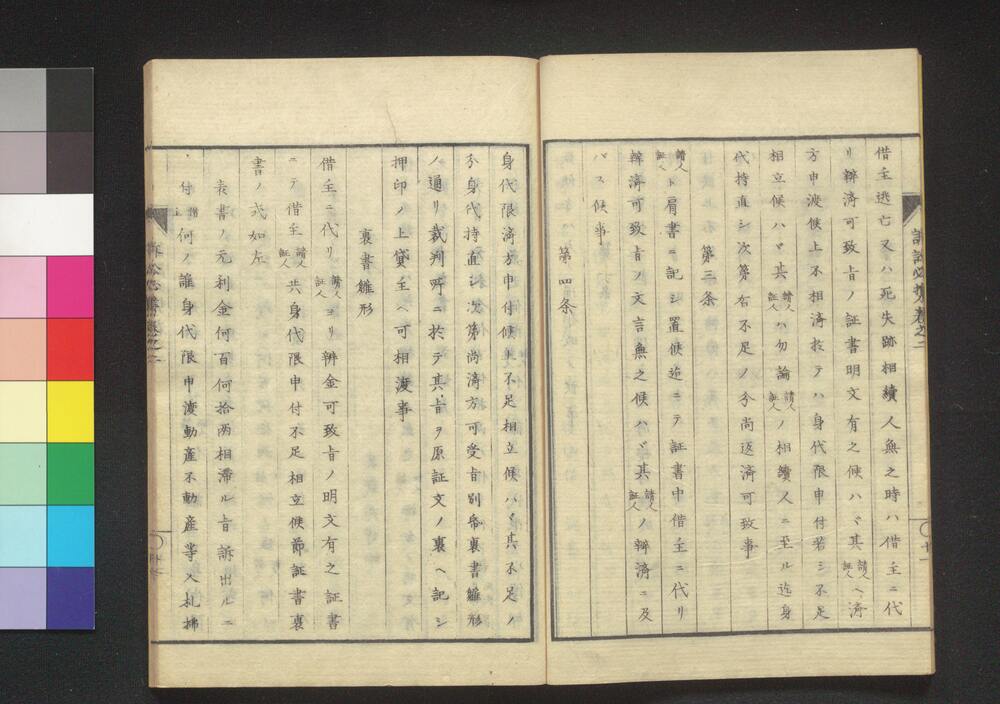 借主逃亡又ハ死失跡相續人無之時ハ借主ニ代
リ辨済可致旨ノ証書明文有之候ハヾ其請人証人ヘ済
方申渡候上不相済於テハ身代限申付若シ不足
相立候ハヾ其請人証人ハ勿論請人証人ノ相續人ニ至ル迄身
代持直シ次第右不足ノ分尚返済可致事
第三条
請人証人ト肩書ニ記シ置候迄ニテ証書中借主ニ代リ
辨済可致旨ノ文言無之候ハヾ其請人証人ノ辨済ニ及
バス候事
第四条
身代限済方申付候其不足相立候ハヾ其不足ノ
分身代持直シ次第尚済方可受旨別帋裏書雛形
ノ通リ裁判所ニ於テ其旨ヲ原証文ノ裏ヘ記シ
押印ノ上貸主ヘ可相渡事
裏書雛形
借主ニ代リ請人証人ヨリ辨金可致旨ノ明文有之証書
ニテ借主請人証人共身代限申付不足相立候節証書裏
書ノ式如左
表書ノ元利金何百何拾両相滞ル旨訴出ルニ
付借主何ノ誰身代限申渡動産不動産等入札拂